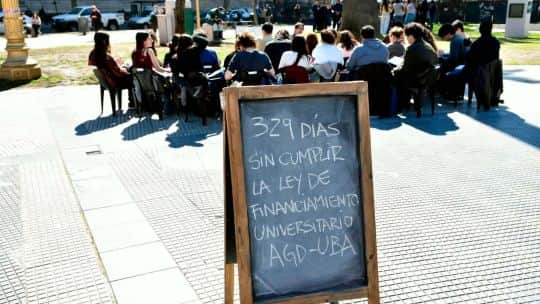 329 DÍAS
SIN CUMPLIR
LA LEY DE
FINANCIAMIENTO
UNIVERSITARIO
AGD-UBA